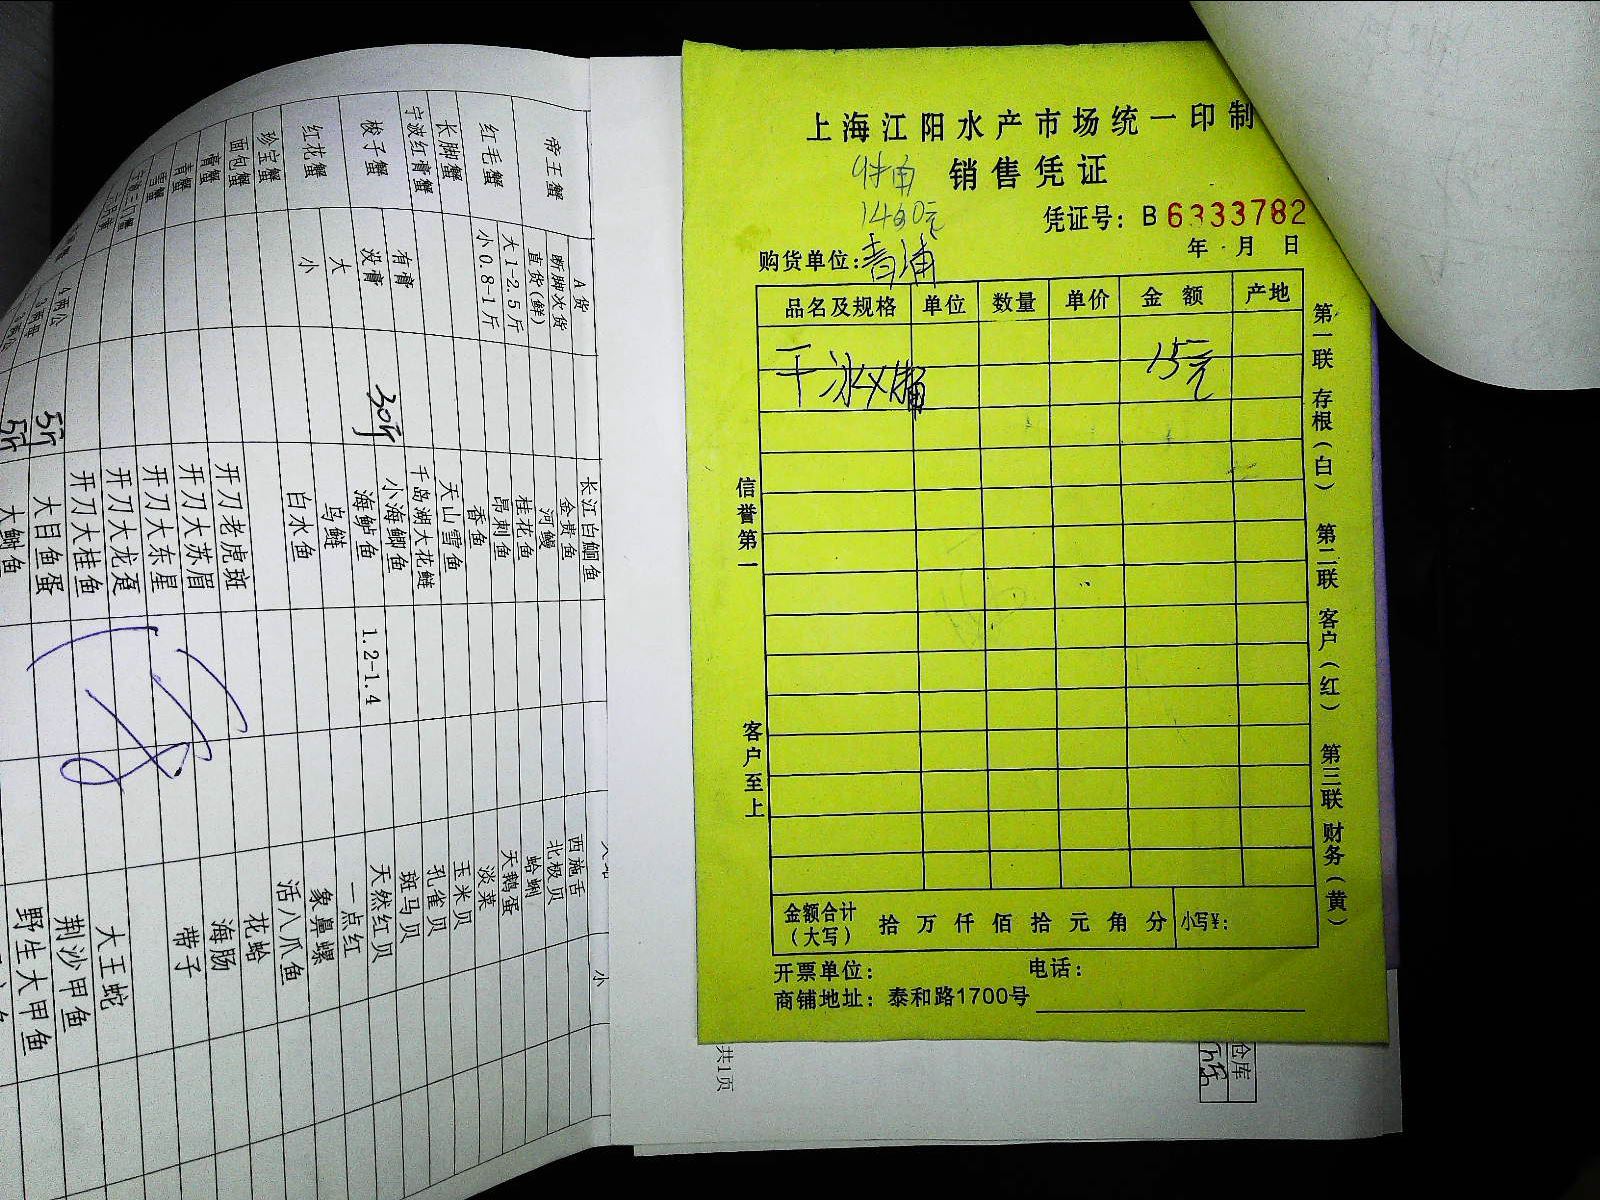 上海江阳水产市场统一印制
销售凭证
1400元
凭证号: B 6333782
年 月 日
购货单位:青浦
品名及规格 单位 数量 单价 金额 产地
干冰 15元
信誉第一
客户至上
第一联 存根(白) 第二联 客户(红) 第三联 财务(黄)
金额合计
(大写)
拾 万 仟 佰 拾 元 角 分
小写¥:
开票单位:
电话:
商铺地址: 泰和路1700号
共1页
仓库
A货
帝王蟹 断脚次货
直货(鲜)
红毛蟹 大1-2.5斤
小0.8-1斤
长脚蟹
宁波红膏蟹
梭子蟹 有膏
没膏 30斤
红花蟹 大
小
珍宝蟹
面包蟹
膏蟹
青蟹
长江白鮰鱼
金贵鱼
河鳗
桂花鱼
昂刺鱼
香鱼
天山雪鱼
千岛湖大花鲢
小海鲫鱼
海鲈鱼 1.2-1.4
乌鲢
白水鱼
开刀老虎斑
开刀大苏眉
开刀大东星
开刀大龙趸
开刀大桂鱼
大目鱼蛋
5斤
5斤
西施舌
北极贝
蛤蜊
天鹅蛋
淡菜
玉米贝
孔雀贝
斑马贝
天然红贝
一点红
象鼻螺
活八爪鱼
花蛤
海肠
带子
大王蛇
荆沙甲鱼
野生大甲鱼
小